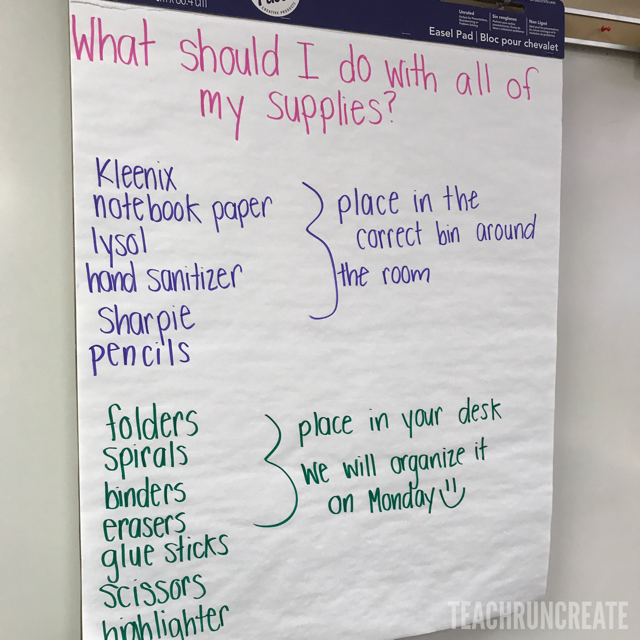 Easel Pad | Bloc pour chevalet
What should I do with all of
my supplies?
Kleenix
notebook paper
lysol
hand sanitizer
Sharpie
pencils
place in the
correct bin around
the room
folders
spirals
binders
erasers
glue sticks
scissors
highlighter
place in your desk
we will organize it
on Monday
TEACHRUNCREATE